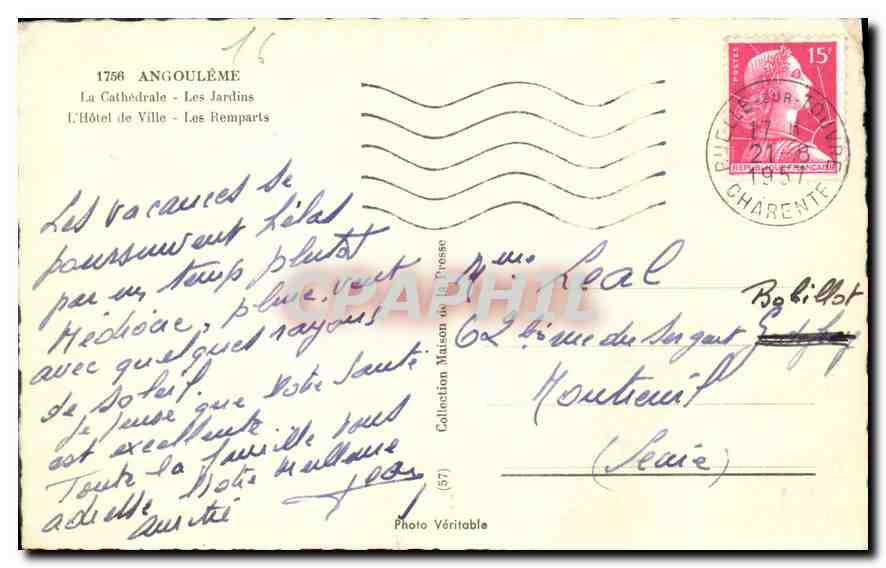 15
1756 ANGOULÊME
La Cathédrale - Les Jardins
L'Hôtel de Ville - Les Remparts
Les vacances se
poursuivent hélas
par un temps plutôt
Médiocre, pluie, vent
avec quelques rayons
de soleil.
Je pense que Votre Santé
est excellente
Toute la famille vous
adresse Notre Meilleure
amitié
Jean
(57) Collection Maison de la Presse
Photo Véritable
POSTES
15F
REPUBLIQUE FRANÇAISE
RUELLE-SUR-TOUVRE
17 H
21-8
1957
CHARENTE
Mme Leal
Bobillot
62 bis rue du Sergent
Montreuil
(Seine)
CPAPHIL